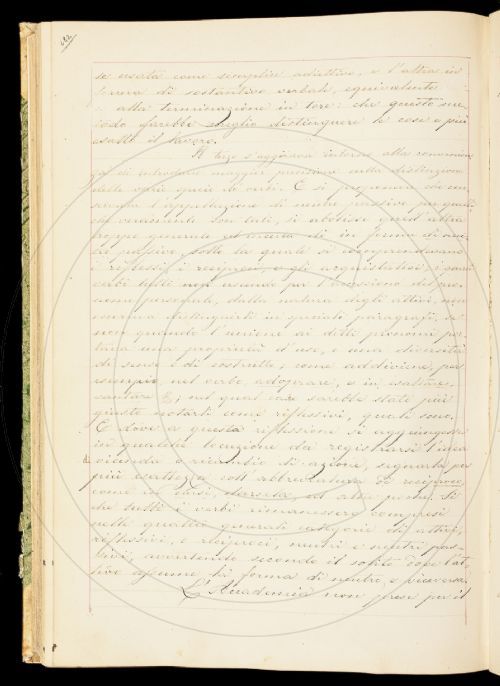 se usata come semplice adiettivo, e l'altra in
di sostantivo verbale, equivalente
alla terminazione in tore: che questo
sarebbe meglio distinguere le cose e più
esatto il lavoro.
Il terzo s'aggirava intorno alla
di introdurre maggior precisione nella distinzione
delle varie specie de' verbi. E si proponeva che
l'appellazione di neutro passivo per quelli
che veramente son tali, si abolisse quell'altra
troppo generale ed incerta di in forma di neu-
tro passivo, sotto la quale si comprendevano
i riflessi, i reciproci, e gli
verbi tutti non essendo per l'accessione del pro-
nome personale, dalla natura degli attivi, non
distinguerli in speciali paragrafi, se
non quando l'unione ai detti pronomi por-
tava una proprietà d'uso, e una diversità
di senso e di costrutto; come addiviene, per
esempio, nel verbo adoperare, e in esaltare,
cantare &; nel qual caso sarebbe stato più
giusto notarli come riflessivi, quali sono.
E dove a questa riflessione si aggiungesse
in qualche locuzione da registrarsi l'idea
di azione, segnarla per
più esattezza coll'abbreviatura Di reciproco,
come in darsi, ed altri pochi. Sì
che tutti i verbi rimanessero compresi
nelle quattro generali categorie di attivi,
riflessivi, e reciproci, neutri e neutri pas-
sivi, avvertendo secondo il solito dove l'at-
tivo assume la forma di neutro, e viceversa.
L'Accademia non prese per il